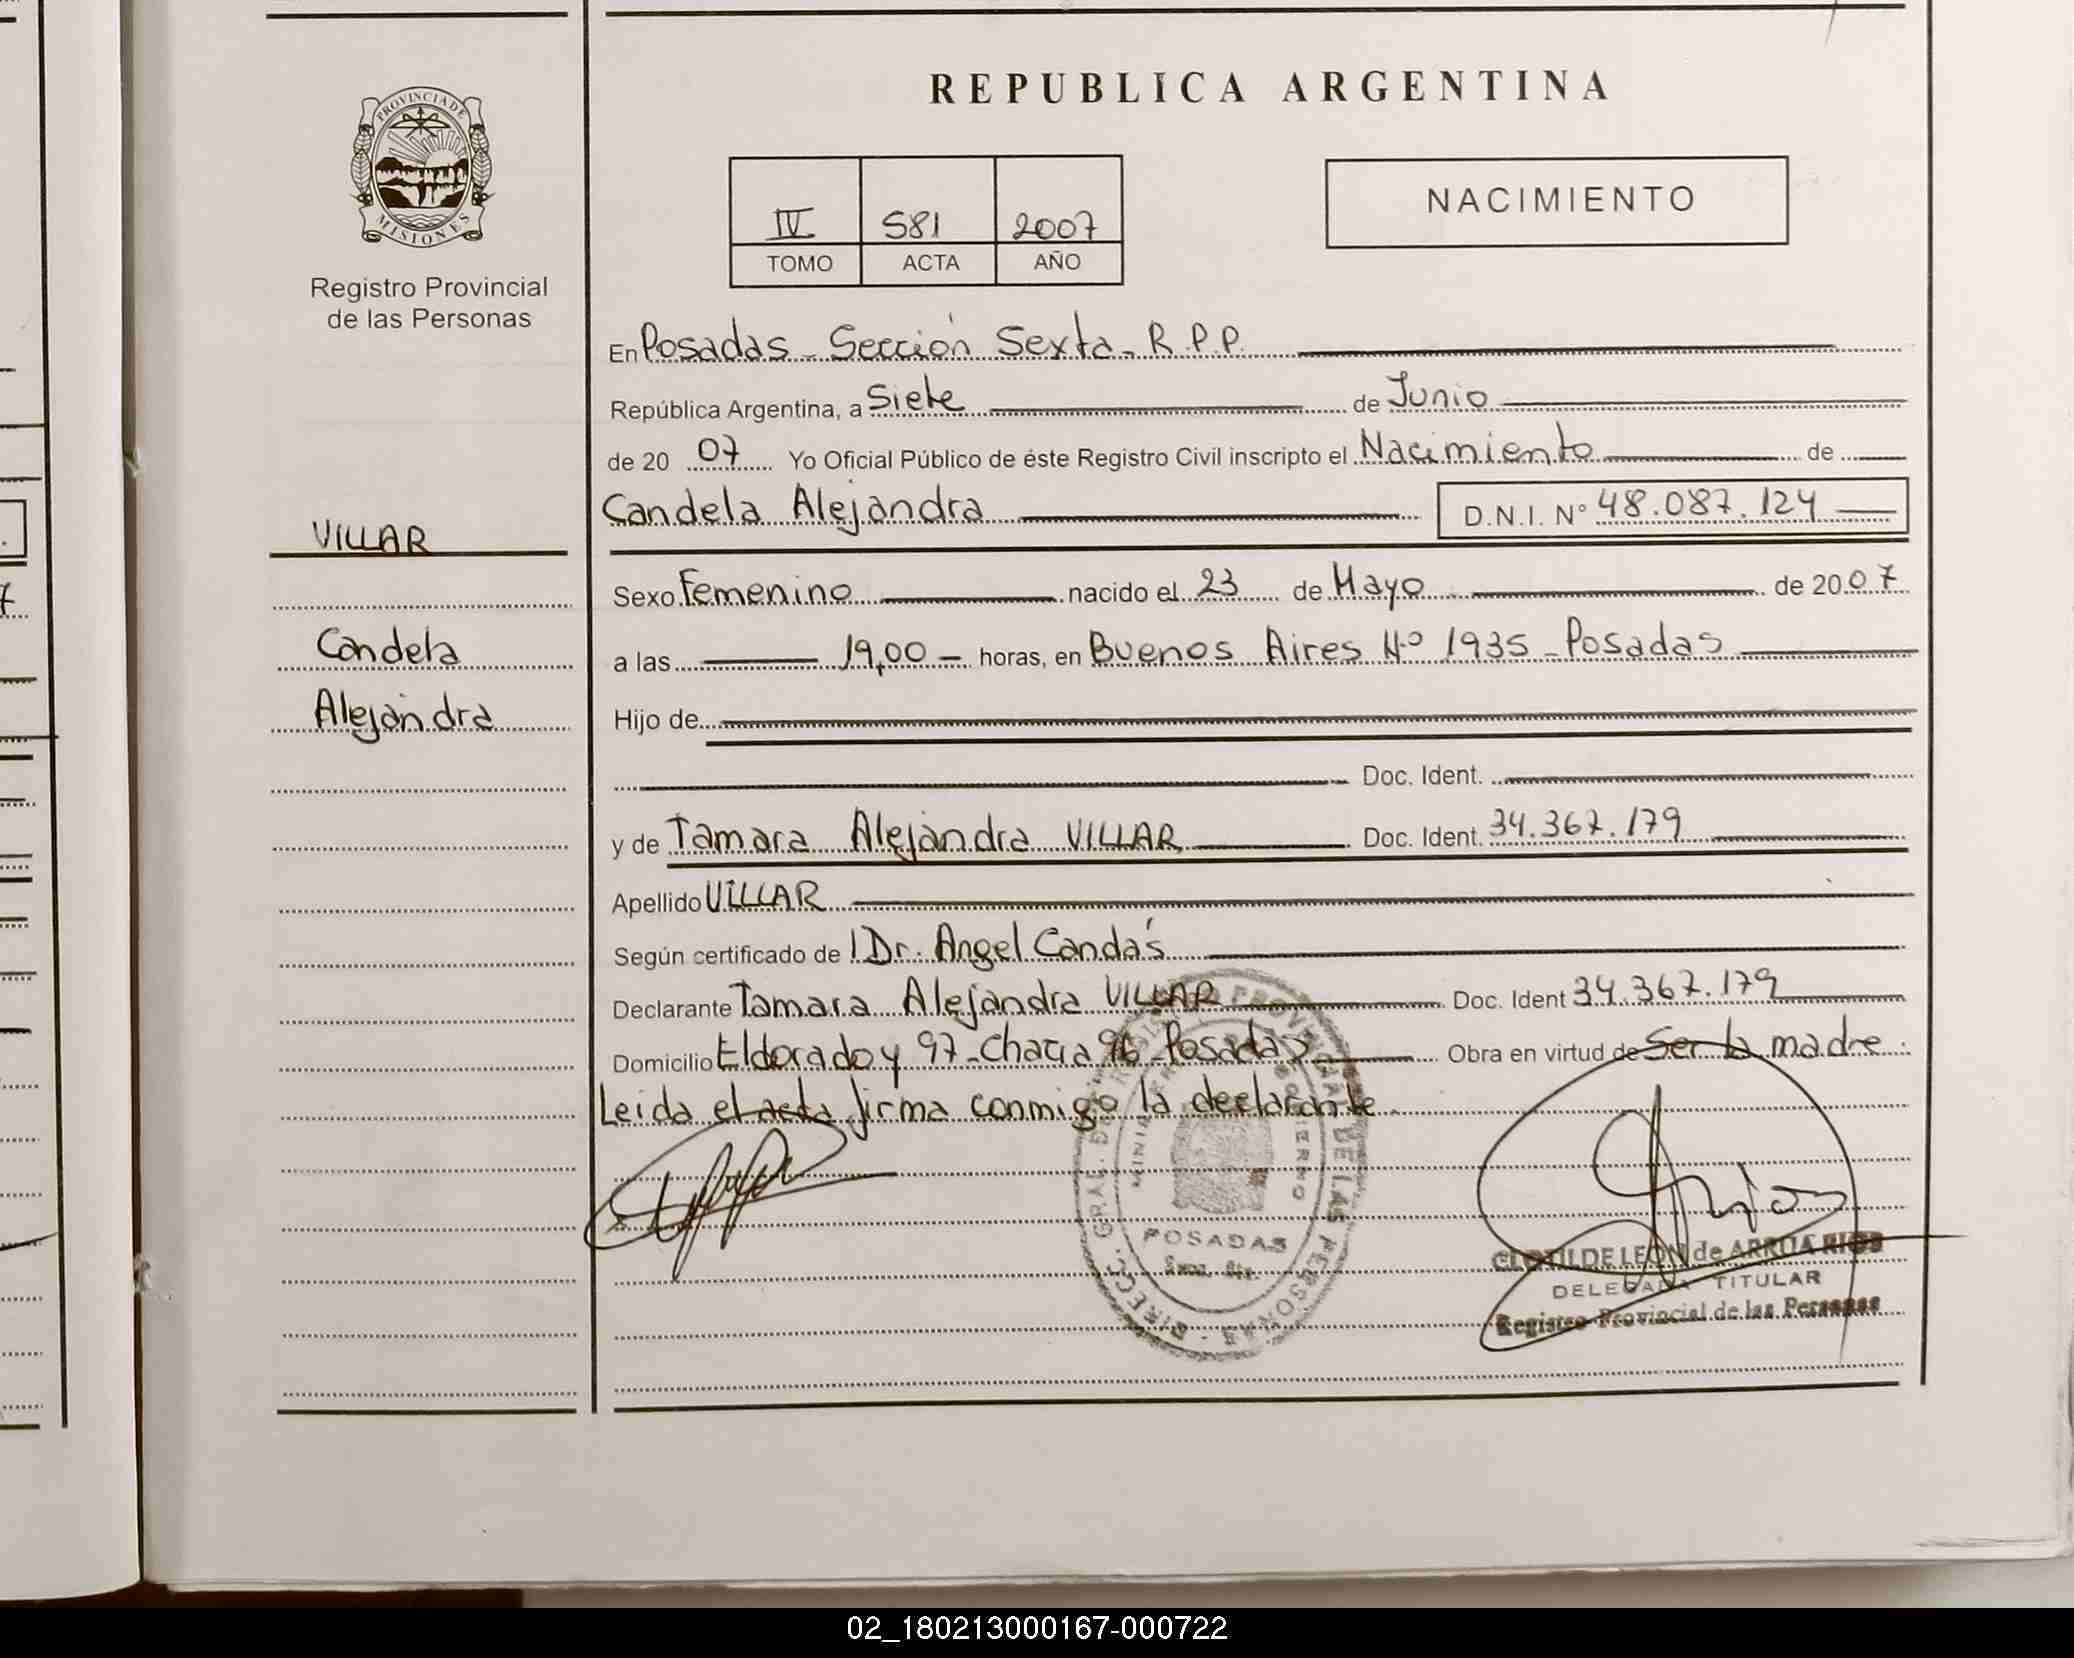 PROVINCIA DE
MISIONES
Registro Provincial
de las Personas
VILLAR
Candela
Alejandra
REPUBLICA ARGENTINA
IV 581 2007
TOMO ACTA AÑO
NACIMIENTO
En Posadas - Sección Sexta - R.P.P.
República Argentina, a Siete de Junio
de 2007 Yo Oficial Público de éste Registro Civil inscripto el Nacimiento de
Candela Alejandra D.N.I. Nº 48.087.124
Sexo Femenino nacido el 23 de Mayo de 2007
a las 19,00 - horas, en Buenos Aires Nº 1935 - Posadas
Hijo de
Doc. Ident.
y de Tamara Alejandra VILLAR Doc. Ident. 34.367.179
Apellido VILLAR
Según certificado de Dr. Angel Candás
Declarante Tamara Alejandra VILLAR Doc. Ident 34.367.179
Domicilio Eldorado y 97 - Chacra 96 - Posadas Obra en virtud de Ser la madre
Leida el acta firma conmigo la declarante
DIRECC. GRAL. DEL REGISTRO PROVINCIAL DE LAS PERSONAS
MINISTERIO GOBIERNO
POSADAS
CLOTILDE LEON de ARRUA RIOS
DELEGADA TITULAR
Registro Provincial de las Personas
02_180213000167-000722